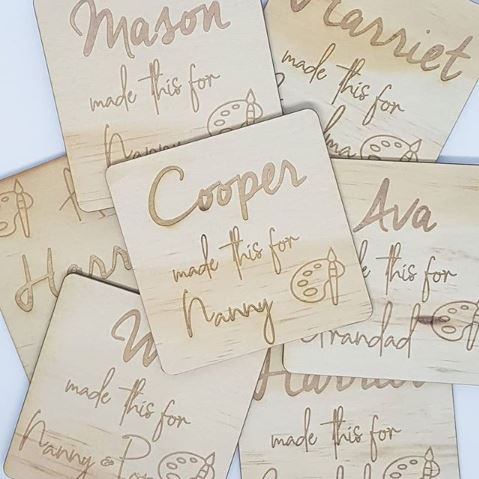 Mason
made this for
Nanny
Harriet
made this for
Cooper
made this for
Nanny
Ava
this for
Grandad
made this for
Nanny &
Harriet
made this for